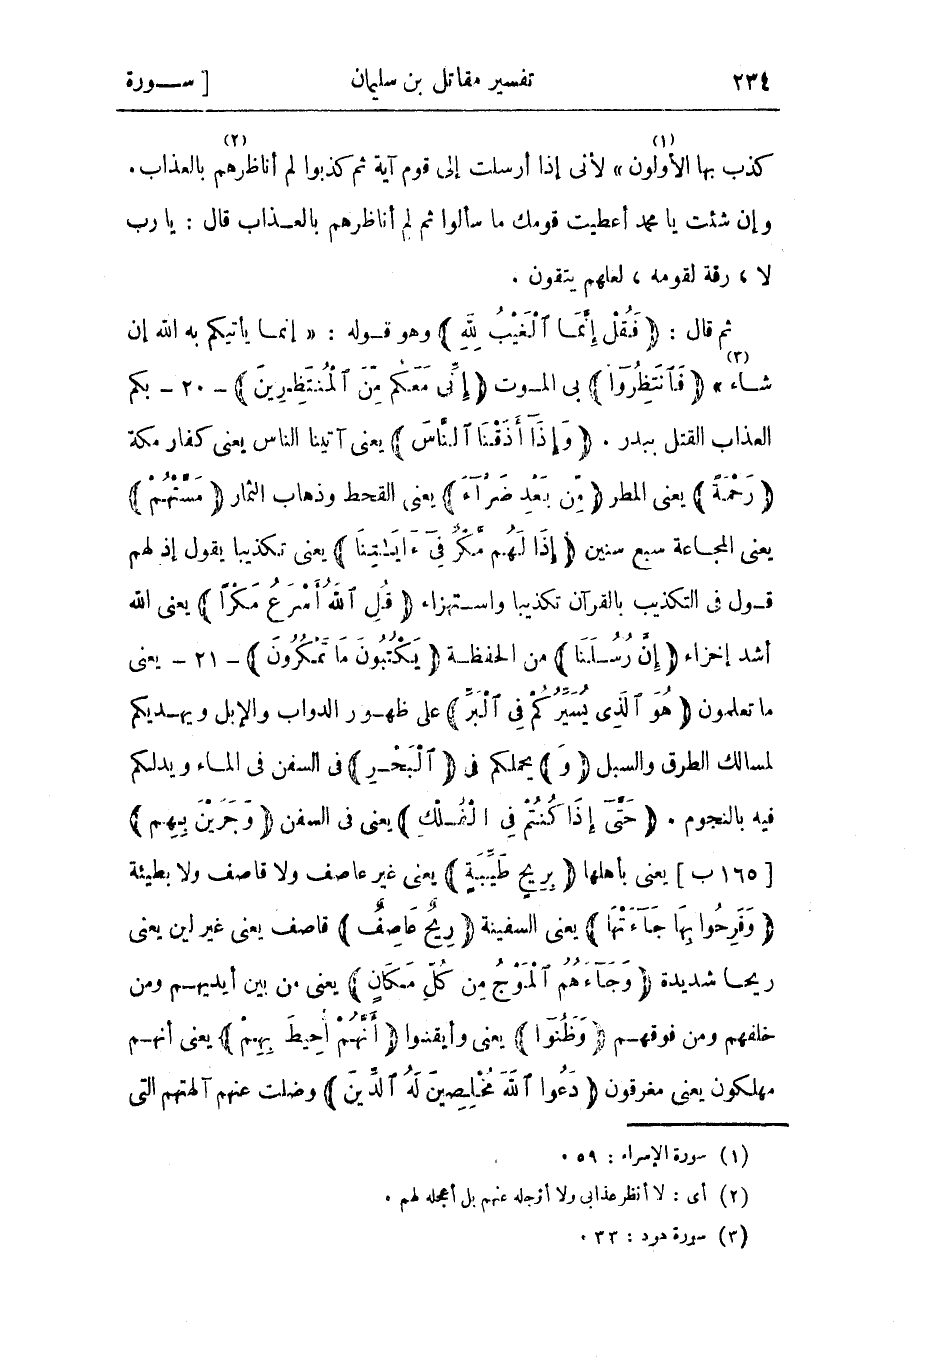 ٢٣٤ تفسير مقاتل بن سليمان [ ســورة
كذب بها الأولون(١) » لأنى إذا أرسلت إلى قوم آية ثم كذبوا لم أناظرهم(٢) بالعذاب .
وإن شئت يا محمد أعطيت قومك ما سألوا ثم لم أناظرهم بالعـذاب قال : يا رب
لا ، رقة لقومه ، لعلهم يتقون .
ثم قال : ﴿ فَقُلْ إِنَّمَا ٱلْغَيْبُ لِلَّهِ ﴾ وهو قـوله : « إنمـا يأتيكم به الله إن
شـاء(٣) » ﴿ فَٱنتَظِرُوٓا۟ ﴾ بى المـوت ﴿ إِنِّى مَعَكُم مِّنَ ٱلْمُنتَظِرِينَ ﴾ - ٢٠ - بكم
العذاب القتل ببدر . ﴿ وَإِذَآ أَذَقْنَا ٱلنَّاسَ ﴾ يعنى آتينا الناس يعنى كفار مكة
﴿ رَحْمَةً ﴾ يعنى المطر ﴿ مِّن بَعْدِ ضَرَّآءَ ﴾ يعنى القحط وذهاب الثمار ﴿ مَسَّتْهُمْ ﴾
يعنى المجـاعة سبع سنين ﴿ إِذَا لَهُم مَّكْرٌ فِىٓ ءَايَـٰتِنَا ﴾ يعنى تكذيبا يقول إذ لهم
قـول فى التكذيب بالقرآن تكذيبا واسـتهزاء ﴿ قُلِ ٱللَّهُ أَسْرَعُ مَكْرًا ﴾ يعنى الله
أشد إخزاء ﴿ إِنَّ رُسُـلَنَا ﴾ من الحفظـة ﴿ يَكْتُبُونَ مَا تَمْكُرُونَ ﴾ - ٢١ - يعنى
ما تعلمون ﴿ هُوَ ٱلَّذِى يُسَيِّرُكُمْ فِى ٱلْبَرِّ ﴾ على ظهـور الدواب والإبل ويهـديكم
لمسالك الطرق والسبل ﴿ وَ ﴾ يحملكم فى ﴿ ٱلْبَحْـرِ ﴾ فى السفن فى المـاء ويدلكم
فيه بالنجوم . ﴿ حَتَّىٓ إِذَا كُنتُمْ فِى ٱلْفُـلْكِ ﴾ يعنى فى السفن ﴿ وَجَرَيْنَ بِهِـم ﴾
[ ١٦٥ ب ] يعنى بأهلها ﴿ بِرِيحٍ طَيِّبَةٍ ﴾ يعنى غير عاصف ولا قاصف ولا بطيئة
﴿ وَفَرِحُوا بِهَا جَآءَتْهَا ﴾ يعنى السفينة ﴿ رِيحٌ عَاصِفٌ ﴾ قاصف يعنى غير لين يعنى
ريحـا شديدة ﴿ وَجَآءَهُمُ ٱلْمَوْجُ مِن كُلِّ مَـكَانٍ ﴾ يعنى من بين أيديهـم ومن
خلفهم ومن فوقهـم ﴿ وَظَنُّوٓا ﴾ يعنى وأيقنوا ﴿ أَنَّهُمْ أُحِيطَ بِهِمْ ﴾ يعنى أنهـم
مهلكون يعنى مغرقون ﴿ دَعَوُا ٱللَّهَ مُخْلِصِينَ لَهُ ٱلدِّينَ ﴾ وضلت عنهم آلهتهم التى
(١) سورة الإسراء : ٥٩ .
(٢) أى : لا أنظر عذابى ولا أؤجله عنهم بل أعجله لهم .
(٣) سورة هود : ٣٣ .